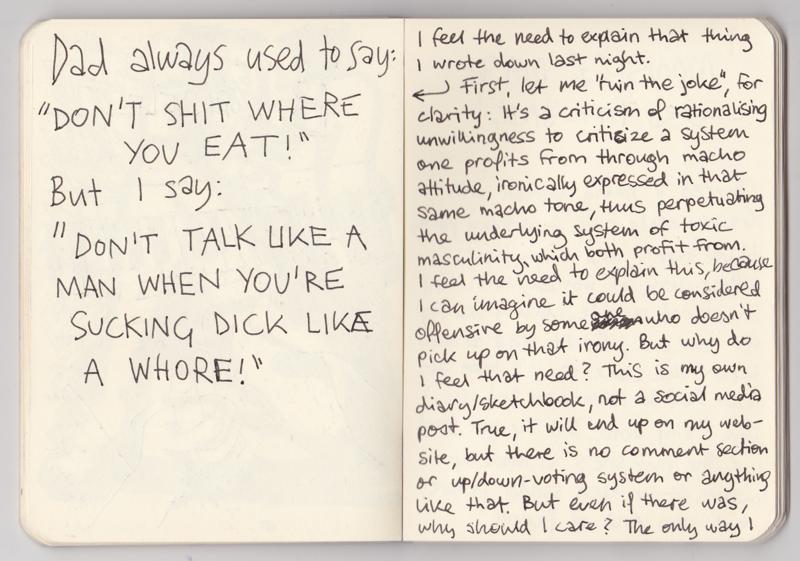 Dad always used to say:
"DON'T SHIT WHERE
YOU EAT!"
But I say:
"DON'T TALK LIKE A
MAN WHEN YOU'RE
SUCKING DICK LIKE
A WHORE!"
I feel the need to explain that thing
I wrote down last night.
First, let me "ruin the joke", for
clarity: It's a criticism of rationalising
unwillingness to criticize a system
one profits from through macho
attitude, ironically expressed in that
same macho tone, thus perpetuating
the underlying system of toxic
masculinity, which both profit from.
I feel the need to explain this, because
I can imagine it could be considered
offensive by some who doesn't
pick up on that irony. But why do
I feel that need? This is my own
diary/sketchbook, not a social media
post. True, it will end up on my web-
site, but there is no comment section
or up/down-voting system or anything
like that. But even if there was,
why should I care? The only way I